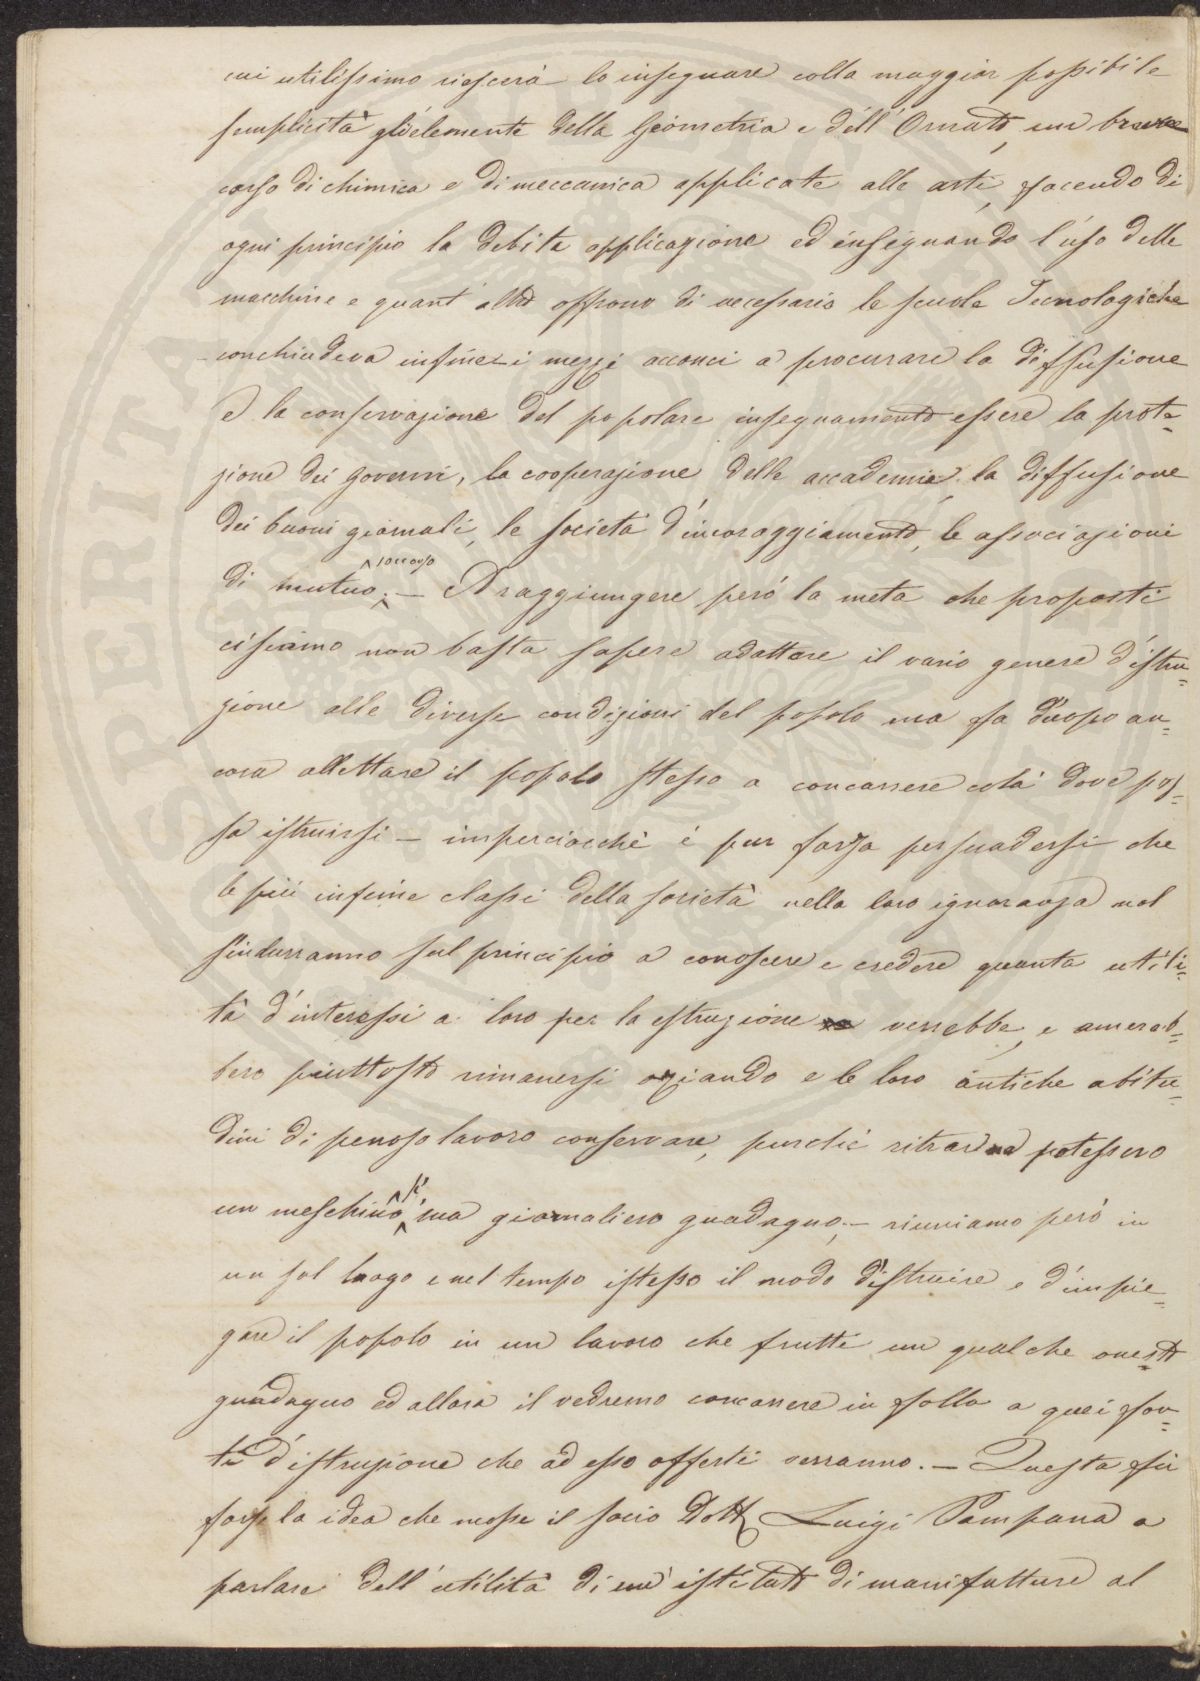 cui utilissimo riescerà lo insegnare colla maggior possibile
semplicità gli elementi della Geometria e dell'Ornato, un breve
corso di chimica e di meccanica applicate alle arti, facendo di
ogni principio la debita applicazione ed insegnando l'uso delle
macchine e quant'altro offrono di necessario le scuole Tecnologiche
conchiudeva infine i mezzi acconci a procurare la diffusione
e la conservazione del popolare insegnamento essere la prote=
zione dei governi, la cooperazione delle accademie, la diffusione
dei buoni giornali, le società d'incoraggiamento, le associazioni
di mutuo soccorso. — A raggiungere però la meta che proposti
ci siamo non basta sapere adattare il vario genere d'istru=
zione alle diverse condizioni del popolo ma fa d'uopo an=
cora allettare il popolo stesso a concorrere colà dove pos=
sa istruirsi — imperciocchè è pur forza persuadersi che
le più infime classi della società nella loro ignoranza mal
s'indurranno sul principio a conoscere e credere quanta utili=
tà d'interessi a loro per la istruzione verrebbe, e amereb=
bero piuttosto rimanersi oziando e le loro antiche abitu=
dini di penoso lavoro conservare, purchè ritrarne potessero
un meschino sì ma giornaliero guadagno; — riuniamo però in
un sol luogo e nel tempo istesso il modo d'istruire e d'impie=
gare il popolo in un lavoro che frutti un qualche onesto
guadagno ed allora il vedremo concorrere in folla a quei fon=
ti d'istruzione che ad esso offerti verranno. — Questa fu
forse la idea che mosse il socio Dott. Luigi Pampana a
parlare dell'utilità di un'istituto di manifatture al